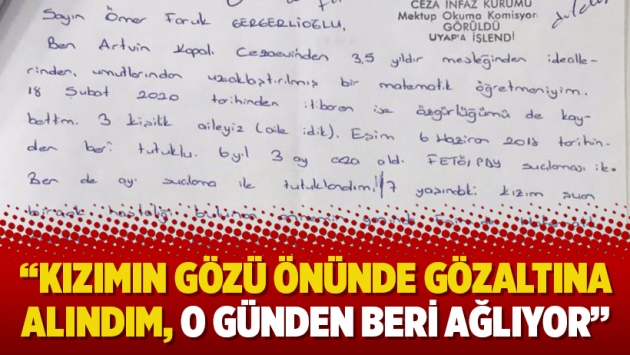 CEZA İNFAZ KURUMU
Mektup Okuma Komisyon
GÖRÜLDÜ
UYAP'A İŞLENDİ
Sayın Ömer Faruk GERGERLİOĞLU,
Ben Artvin Kapalı Cezaevinden 3,5 yıldır mesleğinden idealle-
rinden, umutlarından uzaklaştırılmış bir matematik öğretmeniyim.
18 Şubat 2020 tarihinden itibaren ise özgürlüğümü de kay-
bettim. 3 kişilik aileyiz (aile idik). Eşim 6 Haziran 2018 tarihin-
den beri tutuklu. 6 yıl 3 ay ceza aldı. FETÖ/PDY suçlaması ile.
Ben de ayı suçlama ile tutuklandım. 7 yaşındaki kızım şuan
birçok hastalığı bulunan
“KIZIMIN GÖZÜ ÖNÜNDE GÖZALTINA
ALINDIM, O GÜNDEN BERİ AĞLIYOR”